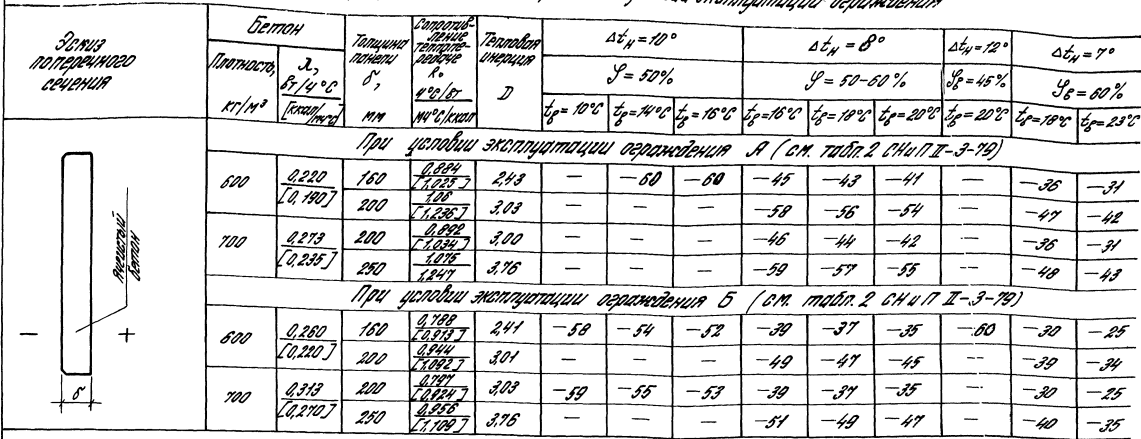 эксплуатации ограждения
Эскиз поперечного сечения
Бетон
Плотность, кг/м³
λ, Вт/ч°С [ккал/мч°С]
Толщина панели δ, мм
Сопротивление теплопередаче R₀ ч°С/Вт мч°С/ккал
Тепловая инерция D
Δtн=10° Δtн=8° Δtн=12° Δtн=7°
φ=50% φ=50-60% φв=45% φв=60%
tв=10°С tв=14°С tв=16°С tв=16°С tв=18°С tв=20°С tв=20°С tв=18°С tв=23°С
При условии эксплуатации ограждения А (см. табл.2 СНиП II-3-79)
600 0,220 [0,190] 160 0,884 [1,025] 2,43 — -60 -60 -45 -43 -41 — -36 -31
200 1,06 [1,236] 3,03 — — — -58 -56 -54 — -47 -42
700 0,273 [0,235] 200 0,892 [1,034] 3,00 — — — -46 -44 -42 — -36 -31
250 1,075 1,247 3,76 — — — -59 -57 -55 — -48 -43
При условии эксплуатации ограждения Б (см. табл.2 СНиП II-3-79)
600 0,260 [0,220] 160 0,788 [0,913] 2,41 -58 -54 -52 -39 -37 -35 -60 -30 -25
200 0,944 [1,092] 3,01 — — — -49 -47 -45 — -39 -34
700 0,313 [0,270] 200 0,797 [0,924] 3,03 -59 -55 -53 -39 -37 -35 — -30 -25
250 0,956 [1,109] 3,76 — — — -51 -49 -47 — -40 -35
Ячеистый бетон
− +
δ